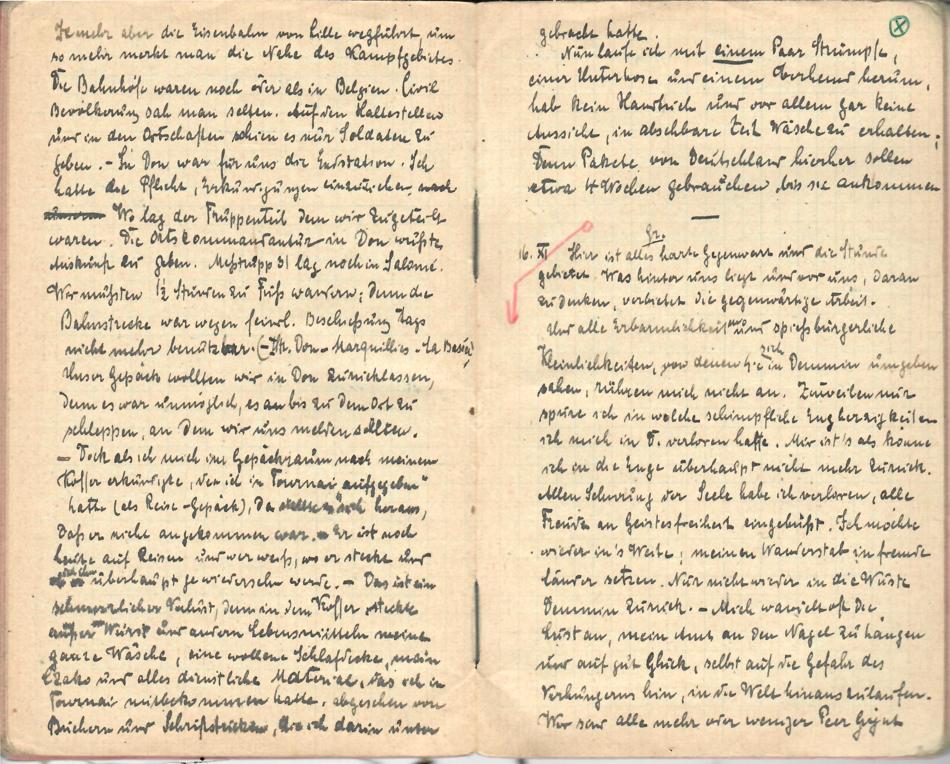 Je mehr aber die Eisenbahn von Lille wegführt, um
so mehr merkt man die Nähe des Kampfgebietes.
Die Bahnhöfe waren noch öder als in Belgien. Civil
Bevölkerung sah man selten. Auf den Haltestellen
und in den Ortschaften schien es nur Soldaten zu
geben. – In Don war für uns die Endstation. Ich
hatte die Pflicht, Erkundigungen einzuziehen, nach
Wo lag der Truppenteil dem wir zugeteilt
waren. Die Ortskommandantur in Don wußte
Auskunft zu geben. Meßtrupp 31 lag noch in Salomé.
Wir mußten 1½ Stunden zu Fuß wandern; denn die
Bahnstrecke war wegen feindl. Beschießung tags
nicht mehr benutzbar. (– Don – Marquillies – La Bassée)
Unser Gepäck wollten wir in Don zurücklassen,
denn es war unmöglich, es an bis zu dem Ort zu
schleppen, an dem wir uns melden sollten.
– Doch als ich mich im Gepäckraum nach meinem
Koffer erkundigte, den ich in Tournai „aufgegeben“
hatte (als Reise-Gepäck), da stellte sich heraus,
daß er nicht angekommen war. Er ist noch
heute auf Reisen und wer weiß, wo er steckt und
ob ich ihn überhaupt je wiedersehn werde. – Das ist ein
schmerzlicher Verlust, denn in dem Koffer steckte
außer Wurst und andern Lebensmitteln meine
ganze Wäsche, eine wollene Schlafdecke, mein
Czako und alles dienstliche Material, das ich in
Tournai mitbekommen hatte, abgesehen von
Büchern und Schriftstücken, die ich darin unter
gebracht hatte.
Nun laufe ich mit einem Paar Strümpfe,
einer Unterhose und einem Oberhemd herum,
hab kein Handtuch und vor allem gar keine
Aussicht, in absehbarer Zeit Wäsche zu erhalten;
Denn Pakete von Deutschland hierher sollen
etwa 4 Wochen gebrauchen, bis sie ankommen
16. XI Hier ist alles harte Gegenwart und die Stunde
gebietet. Was hinter uns liegt und vor uns, daran
zu denken, verbietet die gegenwärtige Arbeit.
Und alle Erbärmlichkeiten und spießbürgerliche
Kleinlichkeiten, von denen wir sich in Demmin umgeben
sahen, rühren mich nicht an. Zuweilen nur
spüre ich in welche schimpfliche Engherzigkeiten
ich mich in D. verloren hatte. Mir ist's als könne
ich in die Enge überhaupt nicht mehr zurück.
Allen Schwung der Seele habe ich verloren, alle
Freude an Geistesfreiheit eingebüßt. Ich möchte
wieder in's Weite; meinen Wanderstab in fremde
Länder setzen. Nur nicht wieder in die Wüste
Demmin zurück. – Mich wandelt oft die
Lust an, mein Amt an den Nagel zu hängen
und auf gut Glück, selbst auf die Gefahr des
Verhungerns hin, in die Welt hinauszulaufen.
Wir sind alle mehr oder weniger Peer Gynt